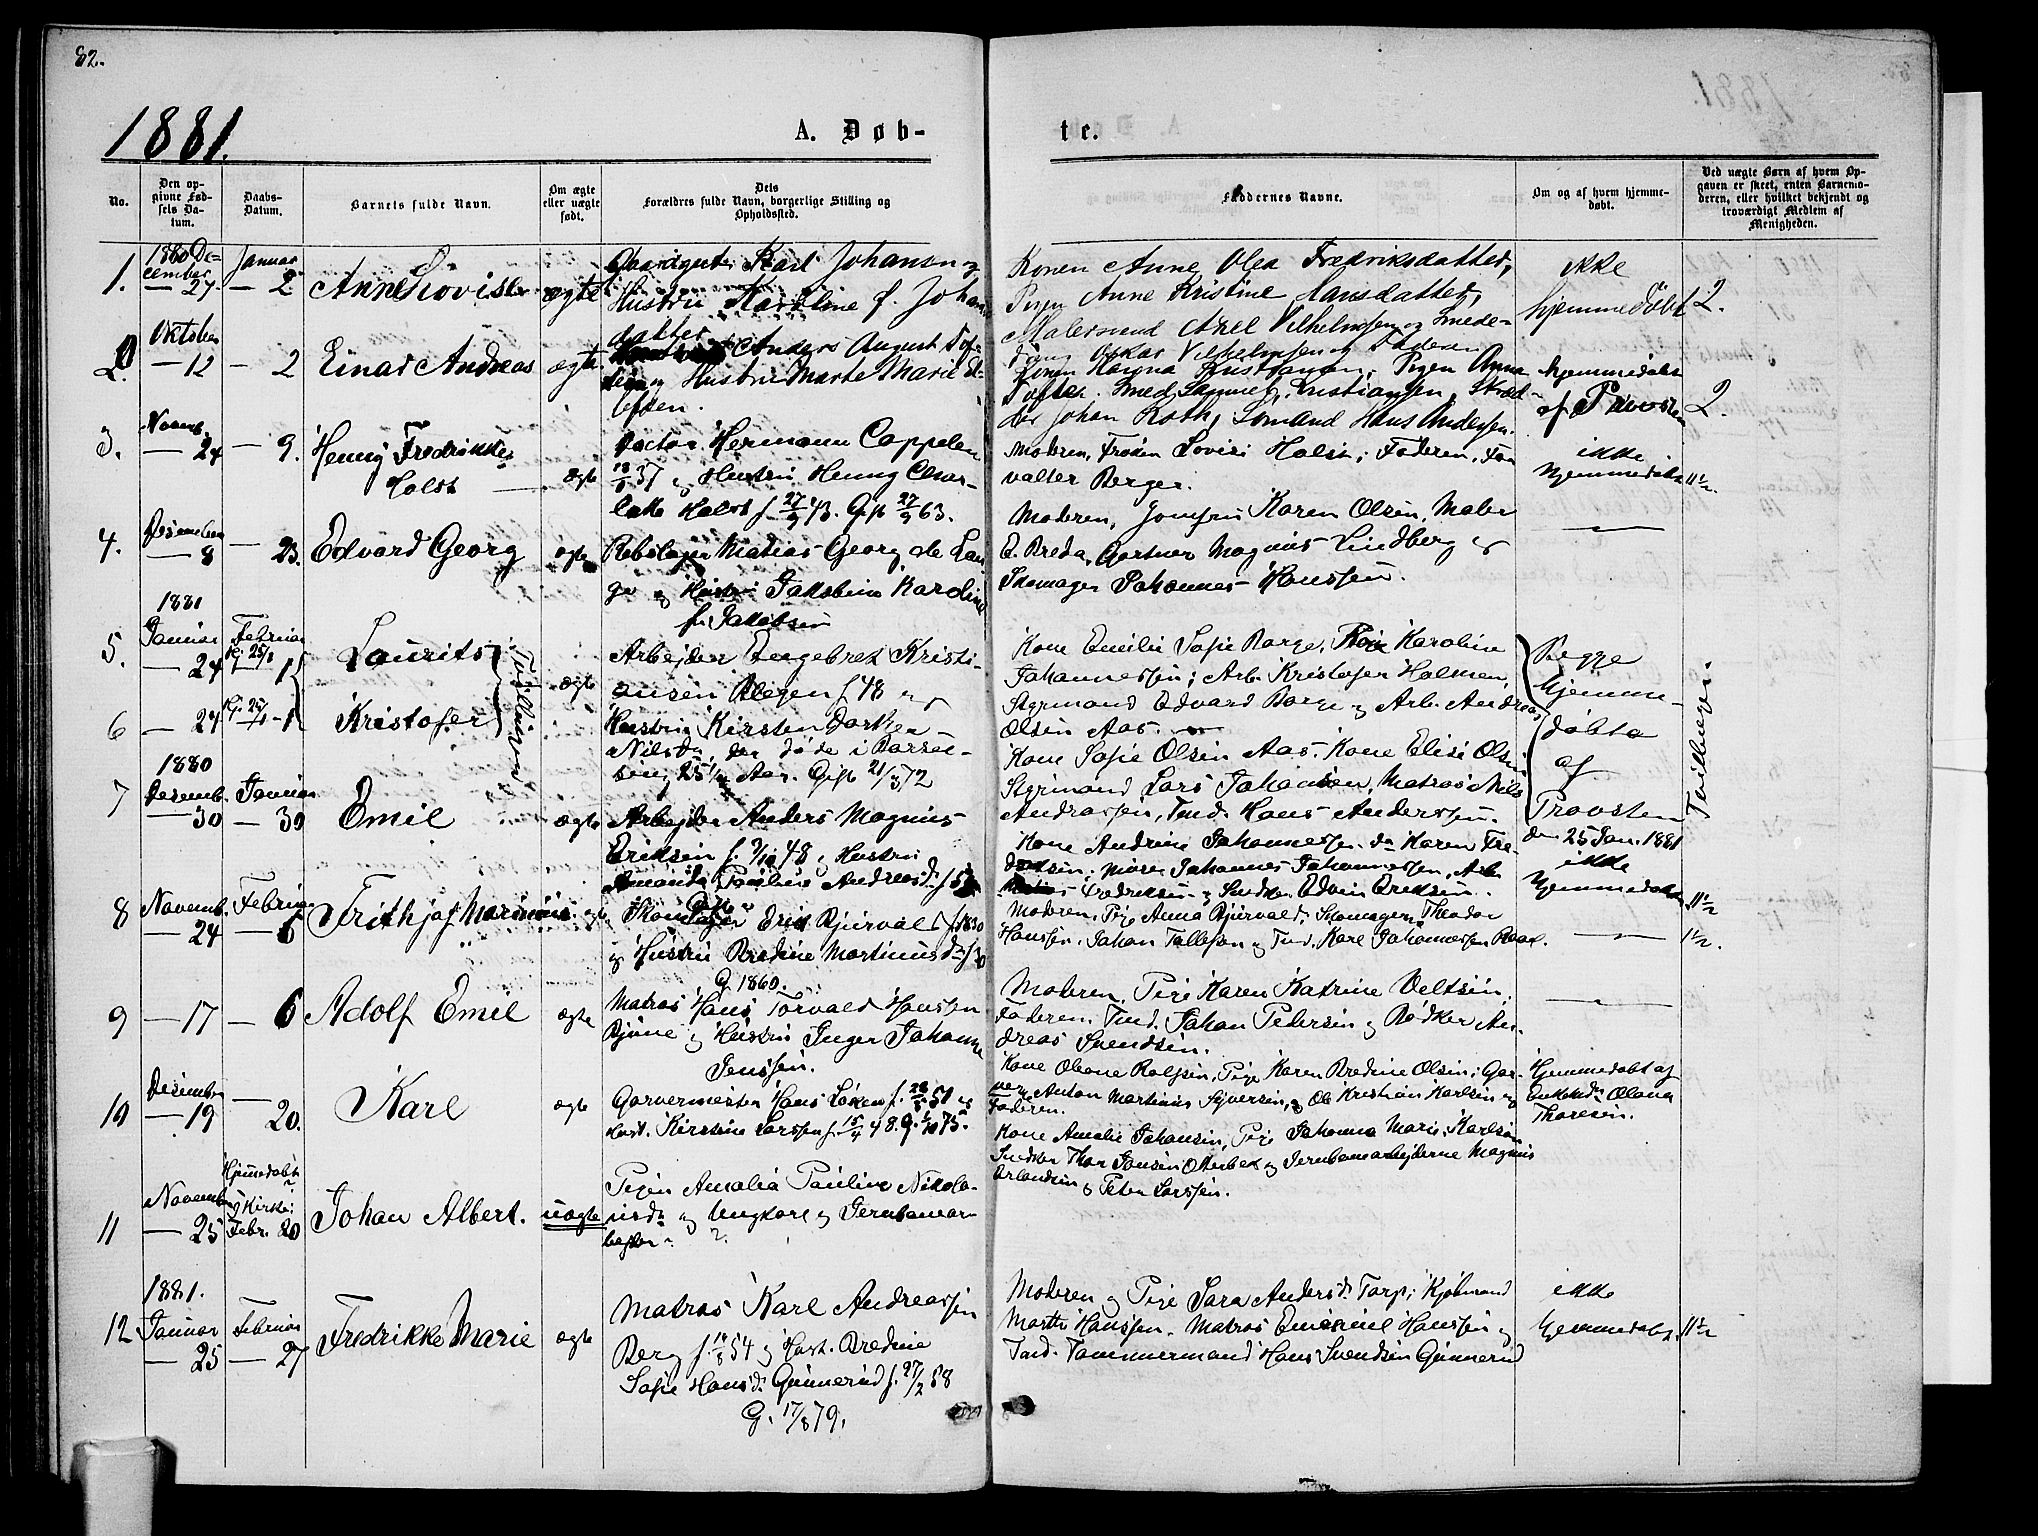 82.
1881.
A. Døb-
te.
No.
Den op-
givne Fød-
sels Da-
tum.
Daabs-
Datum.
Barnets fulde Navn.
Om ægte
eller uægte
født.
Dets
Forældres fulde Navn, borgerlige Stilling og
Opholdssted.
Faddernes Navne.
Om og af hvem hjemme-
døbt.
Ved uægte Børn af hvem Op-
gaven er skeet, enten Barnemo-
deren, eller hvilket bekjendt og
troværdigt Medlem af
Menigheden.
1.
1880 De-
cember
— 27
Januar
— 2
Anne Lovise
ægte
Karl Johansen og
Hustru Karoline f. Johans
datter
Konen Anne Olea Fredriksdatter,
Pigen Anne Kristine Hansdatter,
Malersvend Axel Vilhelmsen og Smede-
dreng Oskar Vilhelmsen og Faderen
ikke
hjemmedøbt
2.
2.
Oktober
— 12
— 2
Einar Andreas
ægte
Anders August Tof-
og Hustru Marte Marie
Konen Hanna Kristiansen, Pigen Anna
Toftes. Smed Samuel Kristiansen, Skræd-
der Johan Roth, Sømand Hans Andersen.
hjemmedøbt
af Provsten
2.
3.
Novemb.
— 24
— 9.
Henny Fredrikke
Holst
ægte
Doctor Hermann Cappelen
37 og Hustru Henny Char-
lotte Holst f. 27/9 43. Gift 27/9 63.
Moderen, Frøken Lovise Holst; Faderen, For
valter Berger.
ikke
hjemmedøbt
11½.
4.
Desember
— 8
— 23.
Edvard Georg
ægte
Rebslager Matias Georg de Lan
ge og Hustru Jakobine Karoline
f. Jakobsen
Moderen, Jomfru Karen Olsen, Maler
E. Breda, Gartner Magnus Lindberg og
Skomager Johannes Hanssen.
—"—
5.
1881
Januar
— 24
Februar
Hj. 25/1
— 1
Laurits
Tvillinger
ægte
Arbejder Engebret Kristi-
ansen Bregen f. 48 og
Hustru Kirsten Dorthea
Nilsd., der døde i Barsel-
seng 25/1 Aar. Gift 21/3 72
Kone Emilie Sofie Borge, Pige Karoline
Johannessen; Arb. Kristofer Holmen,
Styrmand Edvard Borge og Arb. Andreas
Olsen Aas.
Begge
hjemme-
døbte
af
Provsten
den 25 Jan. 1881
Tvillinger.
6
— 24
Hj. 25/1 - 1
Kristofer
Kone Sofie Olsen Aas. Kone Elise Olsen
Styrmand Lars Johansen, Matros Nils
Andreassen, Tmd. Hans Anderssen.
7
1880
Desemb.
— 30
Januar
— 30
Emil
ægte
Arbejder Anders Magnus
Eriksen f. 9/10 48 og Hustru
Amanda Pauline Andreasd. f.
Kone Andrine Johannessen. do Karen Fre-
driksen; Murer Johannes Johannessen, Arb.
Fredriksen og Snedker Edvin Eriksen.
ikke
hjemmedøbt
11½
8
Novemb.
— 24
Februar
— 6
Frithjof Marinius
ægte
Skomager Erik Bjurvald f. 1830
og Hustru Bredine Martinusd. f. 30
G. 1860.
Moderen, Pige Anna Bjurvald; Skomagern Theodor
Hanssen. Johan Tollefsen og Tmd. Karl Johannessen Roar.
—"—
1½.
9
— 17
— 6
Adolf Emil
ægte
Matros Hans Torvald Hanssen
Bjønne og Hustru Inger Johanne
Jenssen.
Moderen, Pige Karen Katrine Veltsen;
Faderen. Tmd. Johan Pedersen og Bødker An-
dreas Svendsen.
—"—
10
Desember
— 19
—
20.
Karl
ægte
Garvermester Hans Løken f. 51 og
Hust. Kirstine Larssen f. 15/4 48. G. 1/10 75.
Kone Oleane Rolfsen, Pige Karen Bredine Olsen; Gar-
ver Anton Martinius Syversen, og Ole Kristian Karlsen og
Faderen.
Hjemmedøbt af
Enkekd. Oleana
Thoresen.
11
Novemb.
— 25
Hjemmedøbt
og i Kirke:
Febr. 20
Johan Albert.
uægte
Pigen Amalia Pauline Nikola-
usd. og Ungkarl og Jernbanear-
bejder
?
Kone Amalie Johansen, Pige Johanna Marie Karlsen
Snedker Thor Jonsen Otterbek og Jernbanearbejderne Magnus
Erlandsen og Peter Larssen.
12
1881.
Januar
— 25
Februar
— 27
Fredrikke Marie
ægte
Matros Karl Andreassen
Berg f. 54 og Hust. Bredine
Sofie Hansd. Gunnerød f. 27/2 58
G. 17/8 79.
Moderen og Pige Sara Andersd. Torp; Kjøbmand
Martin Hanssen. Matros Emanuel Hanssen og
Tmd. Tømmermand Hans Svendsen Gunnerød
ikke
hjemmedøbt.
11½